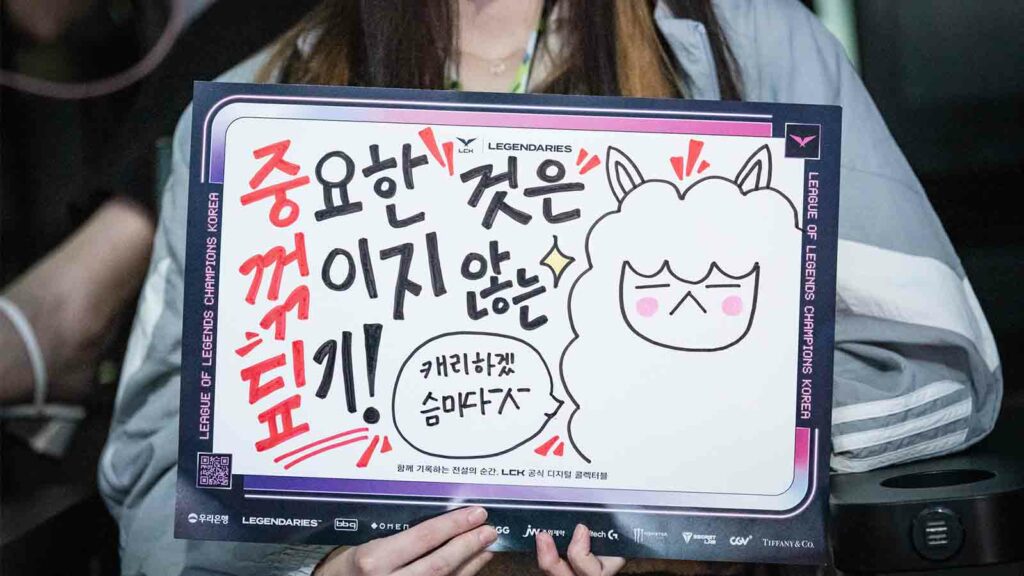 LCK | LEGENDARIES
중요한 것은
꺾이지 않는
딮기!
캐리하겠
슴미다-ㅅ-
LEAGUE OF LEGENDS CHAMPIONS KOREA
LEAGUE OF LEGENDS CHAMPIONS KOREA
함께 기록하는 전설의 순간. LCK 공식 디지털 콜렉터블
우리은행 LEGENDARIES™ bbq OMEN GG JW 중외제약 Logitech G MONSTER SECRETLAB CGV TIFFANY & CO.